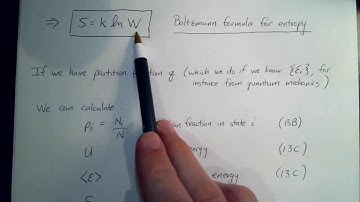 ⇒ S = k ln W Boltzmann formula for entropy
If we have partition function q (which we do if we know {εi}, for
instance from quantum mechanics)
We can calculate :
Pi = Ni/N fraction in state i (13B)
U energy (13C)
⟨ε⟩ energy (13C)
S